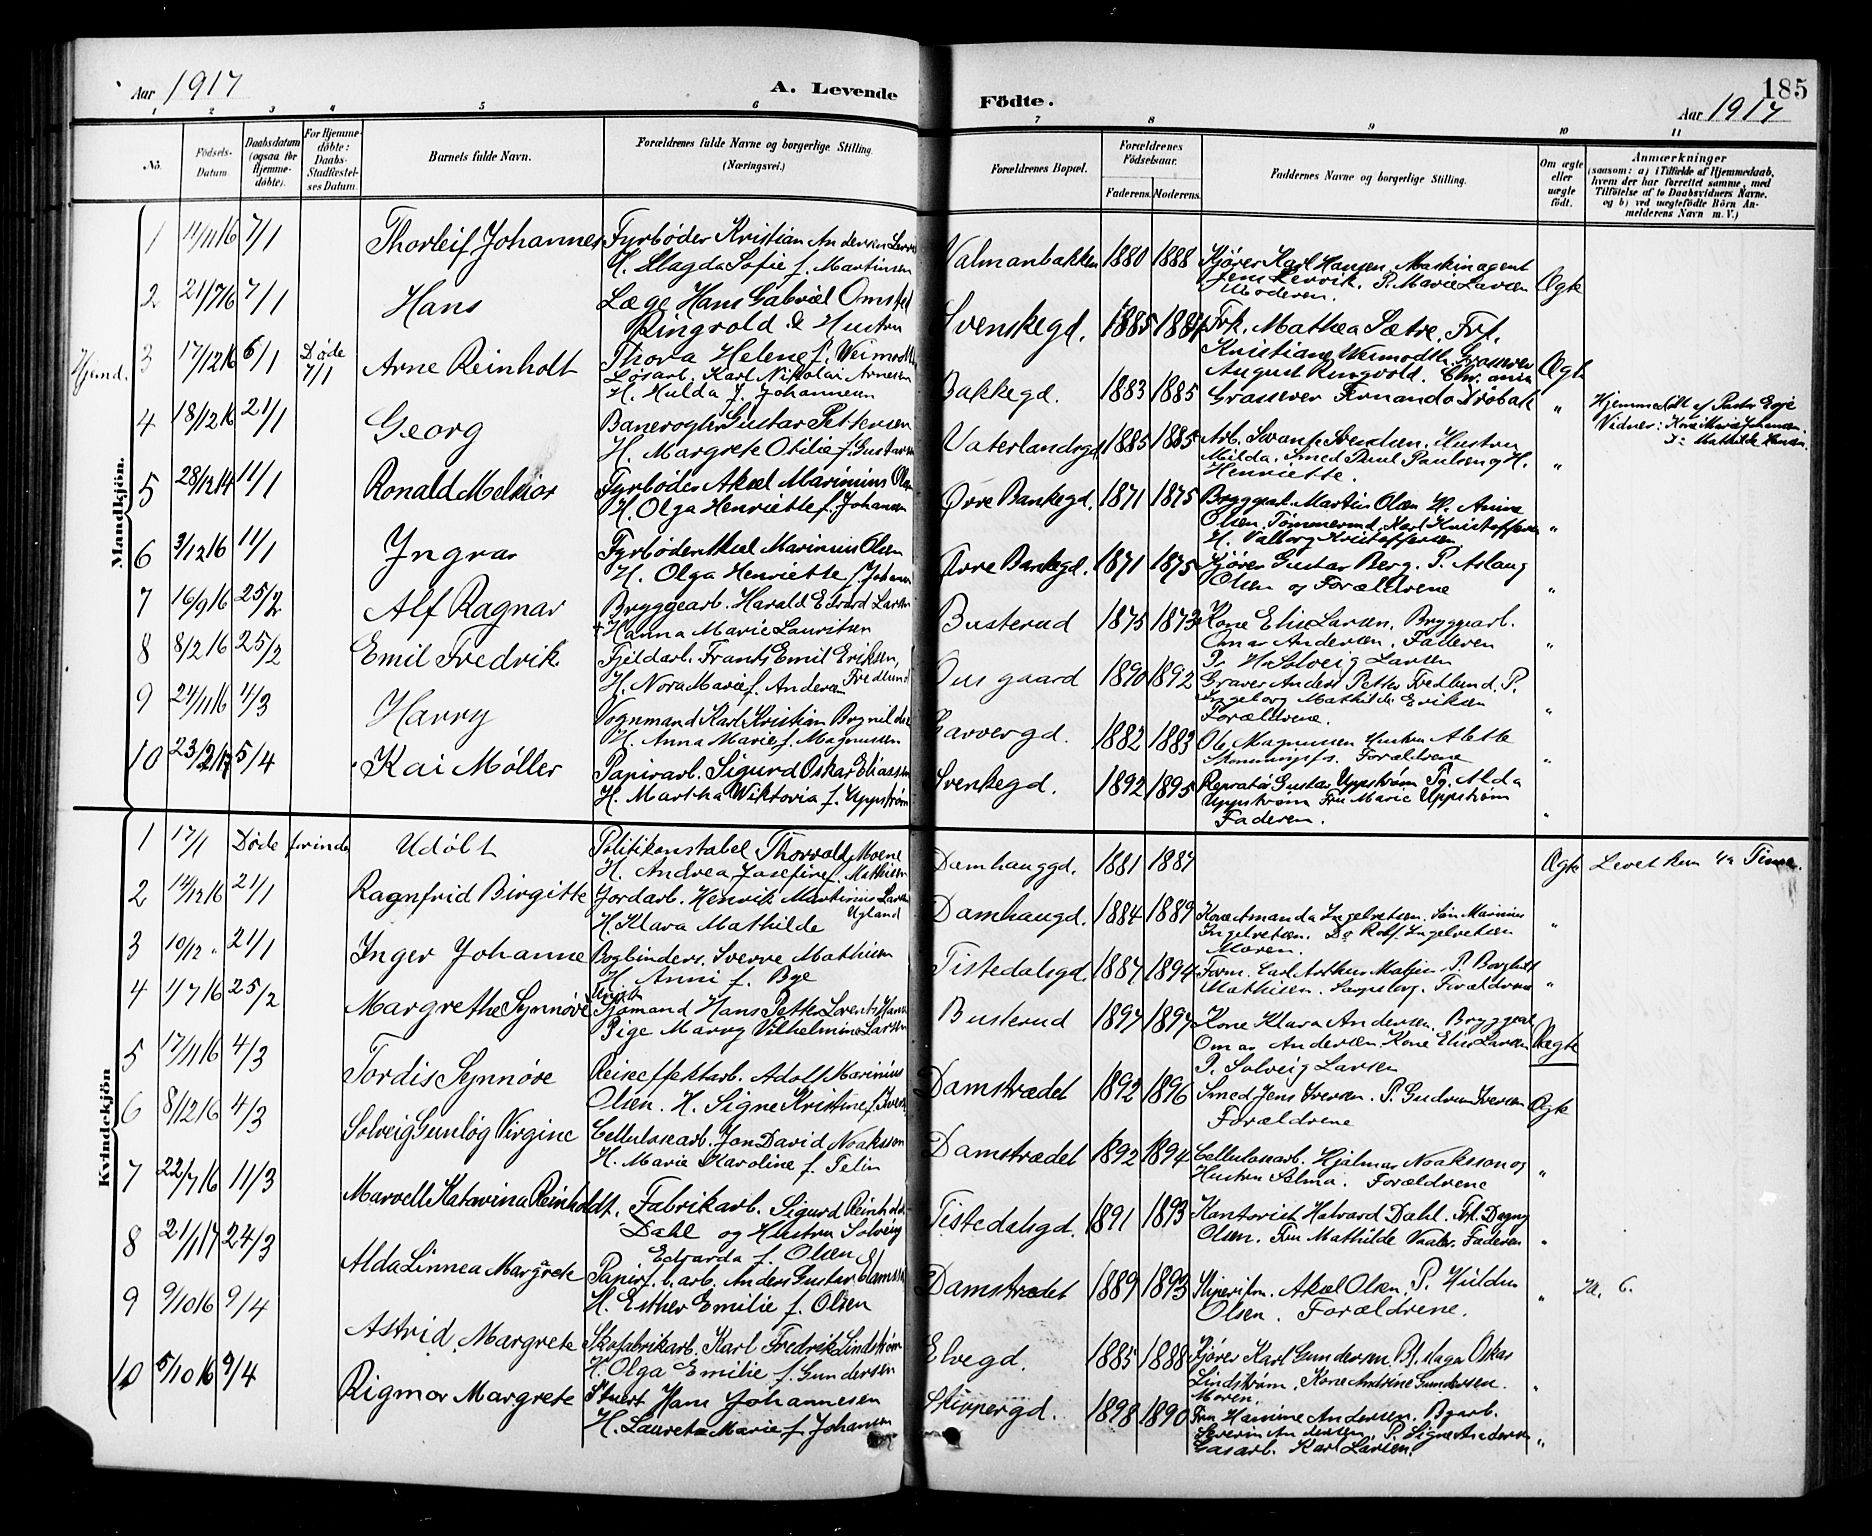 Aar 1917
A. Levende
Födte.
185
Aar 1917
1 2 3 4 5 6 7 8 9 10 11
No.
Födsels-Datum
Daabsdatum (ogsaa for Hjemme-döbte).
For Hjemme-döbte: Daabs-Stadfæstel-ses Datum.
Barnets fulde Navn.
Forældrenes fulde Navne og borgerlige Stilling. (Næringsvei.)
Forældrenes Bopæl.
Forældrenes Födselsaar.
Faderens. Moderens.
Faddernes Navne og borgerlige Stilling.
Om ægte eller uægte födt.
Anmærkninger
(saasom: a) i Tilfælde af Hjemmedaab,
hvem der har forrettet samme, med
Tilföielse af to Daabsvidners Navne.
og b) ved uægtefödte Börn An-
melderens Navn m. V.)
Mandkjön.
1 11/11 16 7/1 Thorleif Johannes Fyrbøder Kristian Andersen
H. Magda Sofie f. Martinsen
Valmanbakken 1880 1888 Kjører Karl Hansen. Maskinagent
Jens Lervik. P. Marie Larsen
Moderen. Ægte
2 21/7 16 7/1 Hans Læge Hans Gabriel Omsted
Ringvold & Hustru
Thora Helene f.
Svenskegd. 1885 1884 Frk. Mathea Sætre. Frk.
Kristiane Wermodth. Grosserer
August Ringvold. Chr.ania Ægte
Hjemd. 3 17/12 16 6/1 Døde 7/1 Arne Reinholt
Løsarb. Karl Nikolai Arnesen
H. Hulda f. Johannesen
Bakkegd. 1883 1885 Grosserer Fernando Drøbak "
Hjemmedøbt af Pastor
Vidner:
4 18/12 16 21/1 Georg Banevogter Gustav Pettersen
H. Margrete Otilie f. Gustavsen
Vaterlandsgd 1885 1885 Arb. Svend Svendsen. Hustru
Milda. Smed Paul Paulsen og H.
Henriette. "
5 28/12 14 11/1 Ronald Melkior Fyrbøder Aksel Marinius Olsen
H. Olga Henriette f. Johansen
Øvre Bankegd. 1871 1875 Bryggearb. Martin Olsen H. Anine
Olsen. Tømmermd. Karl Kristoffersen
H. Valborg Kristoffersen "
6 3/12 16 11/1 Yngvar Fyrbøder Aksel Marinius Olsen
H. Olga Henriette f. Johansen
Øvre Bankegd. 1871 1875 Kjører Gustav Berg. P. Aslaug
Olsen og Forældrene "
7 16/9 16 25/2 Alf Ragnar Bryggearb. Harald Edvard Larsen
+ Hanna Marie Lauritsen
Busterud 1875 1873 Kone Elise Larsen. Bryggearb.
Omar Andersen. Faderen
P. H. Solveig Larsen "
8 8/2 16 25/2 Emil Fredrik Fjeldarb. Frants Emil Eriksen,
H. Nora Marie f. Andersen Fredlund
Ousgaard 1890 1892 Graver Anders Petter Fredlund. P.
Ingeborg Mathilde Eriksen
Forældrene. "
9 24/11 16 4/3 Harry Vognmand Karl Kristian
H. Anna Marie f. Magnussen
Garvergd. 1882 1883 Ole Magnussen Hustru Alette
Forældrene "
10 23/2 17 5/4 Kai Møller Papirarb. Sigurd Oskar Eliassen
H. Martha Wiktoria f. Uppstrøm
Svenkegd. 1892 1895 Reparatør Gustav Uppstrøm Pg. Alda
Uppstrøm Fru Marie Uppstrøm
Faderen. "
Kvindekjön
1 17/1 Døde forinden Udøbt Politikonstabel Thorvald Moene
H. Andrea Josefine f. Mathisen
Damhauggd. 1881 1887 Ægte Levet kun 1/2 Time.
2 14/12 16 21/1 Ragnfrid Birgitte Jordarb. Henrik Martinius Larsen
Ugland
H. Klara Mathilde
Damhaugd. 1884 1889 Kone Amanda Ingebretsen. Søn Marinius
Ingebretsen. Do Rolf Ingebretsen
Moren. "
3 10/12 " 21/1 Inger Johanne Bogbinders. Sverre Mathisen
H. Anni f. Bye
Tistedalsgd. 1887 1894
Mathisen. Sarpsborg. Forældrene "
4 4/7 16 25/2 Margrethe Synnøve Ugift
Sjømand Hans Petter Lorents Hansen
Pige Marry Vilhelmine Larsen
Busterud 1897 1897 Kone Klara Andersen. Bryggearb.
Omar Andersen. Kone Elise Larsen
P. Solveig Larsen Uægte
5 17/11 16 4/3 Tordis Synnøve Reiseeffektarb. Adolf Marinius
Olsen. H. Signe Kristine f. Iversen
Damstrædet 1892 1896 Smed Jens Iversen. P. Gudrun Iversen
Forældrene Ægte
6 8/12 16 4/3 Solveig Gunløg Virgine Cellulosearb. Jon David Noaksson
H. Marie Karoline f. Felin
Damstrædet 1892 1894 Cellulosearb. Hjalmar Noaksson og
Hustru Selma. Forældrene "
7 22/7 16 11/3 Marvell Katarina Reinholdt. Fabrikarb. Sigurd Reinholdt
Dahl og Hustru Solveig
Edvarda f. Olsen
Tistedalsgd. 1891 1893 Kontorist Halvard Dahl. Frk. Dagny
Olsen. Fru Mathilde Faderen "
8 21/1 17 24/3 Alda Linnea Margrete Papirf.b.arb. Anders Gustav
H. Esther Emilie f. Olsen
Damstrædet 1889 1893 Aksel Olsen. P. Huldu
Olsen. Forældrene. " 6.
9 9/10 16 9/4 Astrid Margrete Skofabrikarb. Karl Fredrik Lindstrøm
H. Olga Emilie f. Gundersen
Elvegd. 1885 1888 Kjører Karl Gundersen. Bl.slager Oskar
Lindstrøm. Kone Andrine Gundersen.
Moren. "
10 5/10 16 9/4 Rigmor Margrete Stuert Hans Johannesen
H. Laureta Marie f. Johansen
Skippergd. 1898 1890 Fru Hanine Andersen. Byarb.
Severin Andersen. P. Signe Andersen
Gasarb. Karl Larsen. "